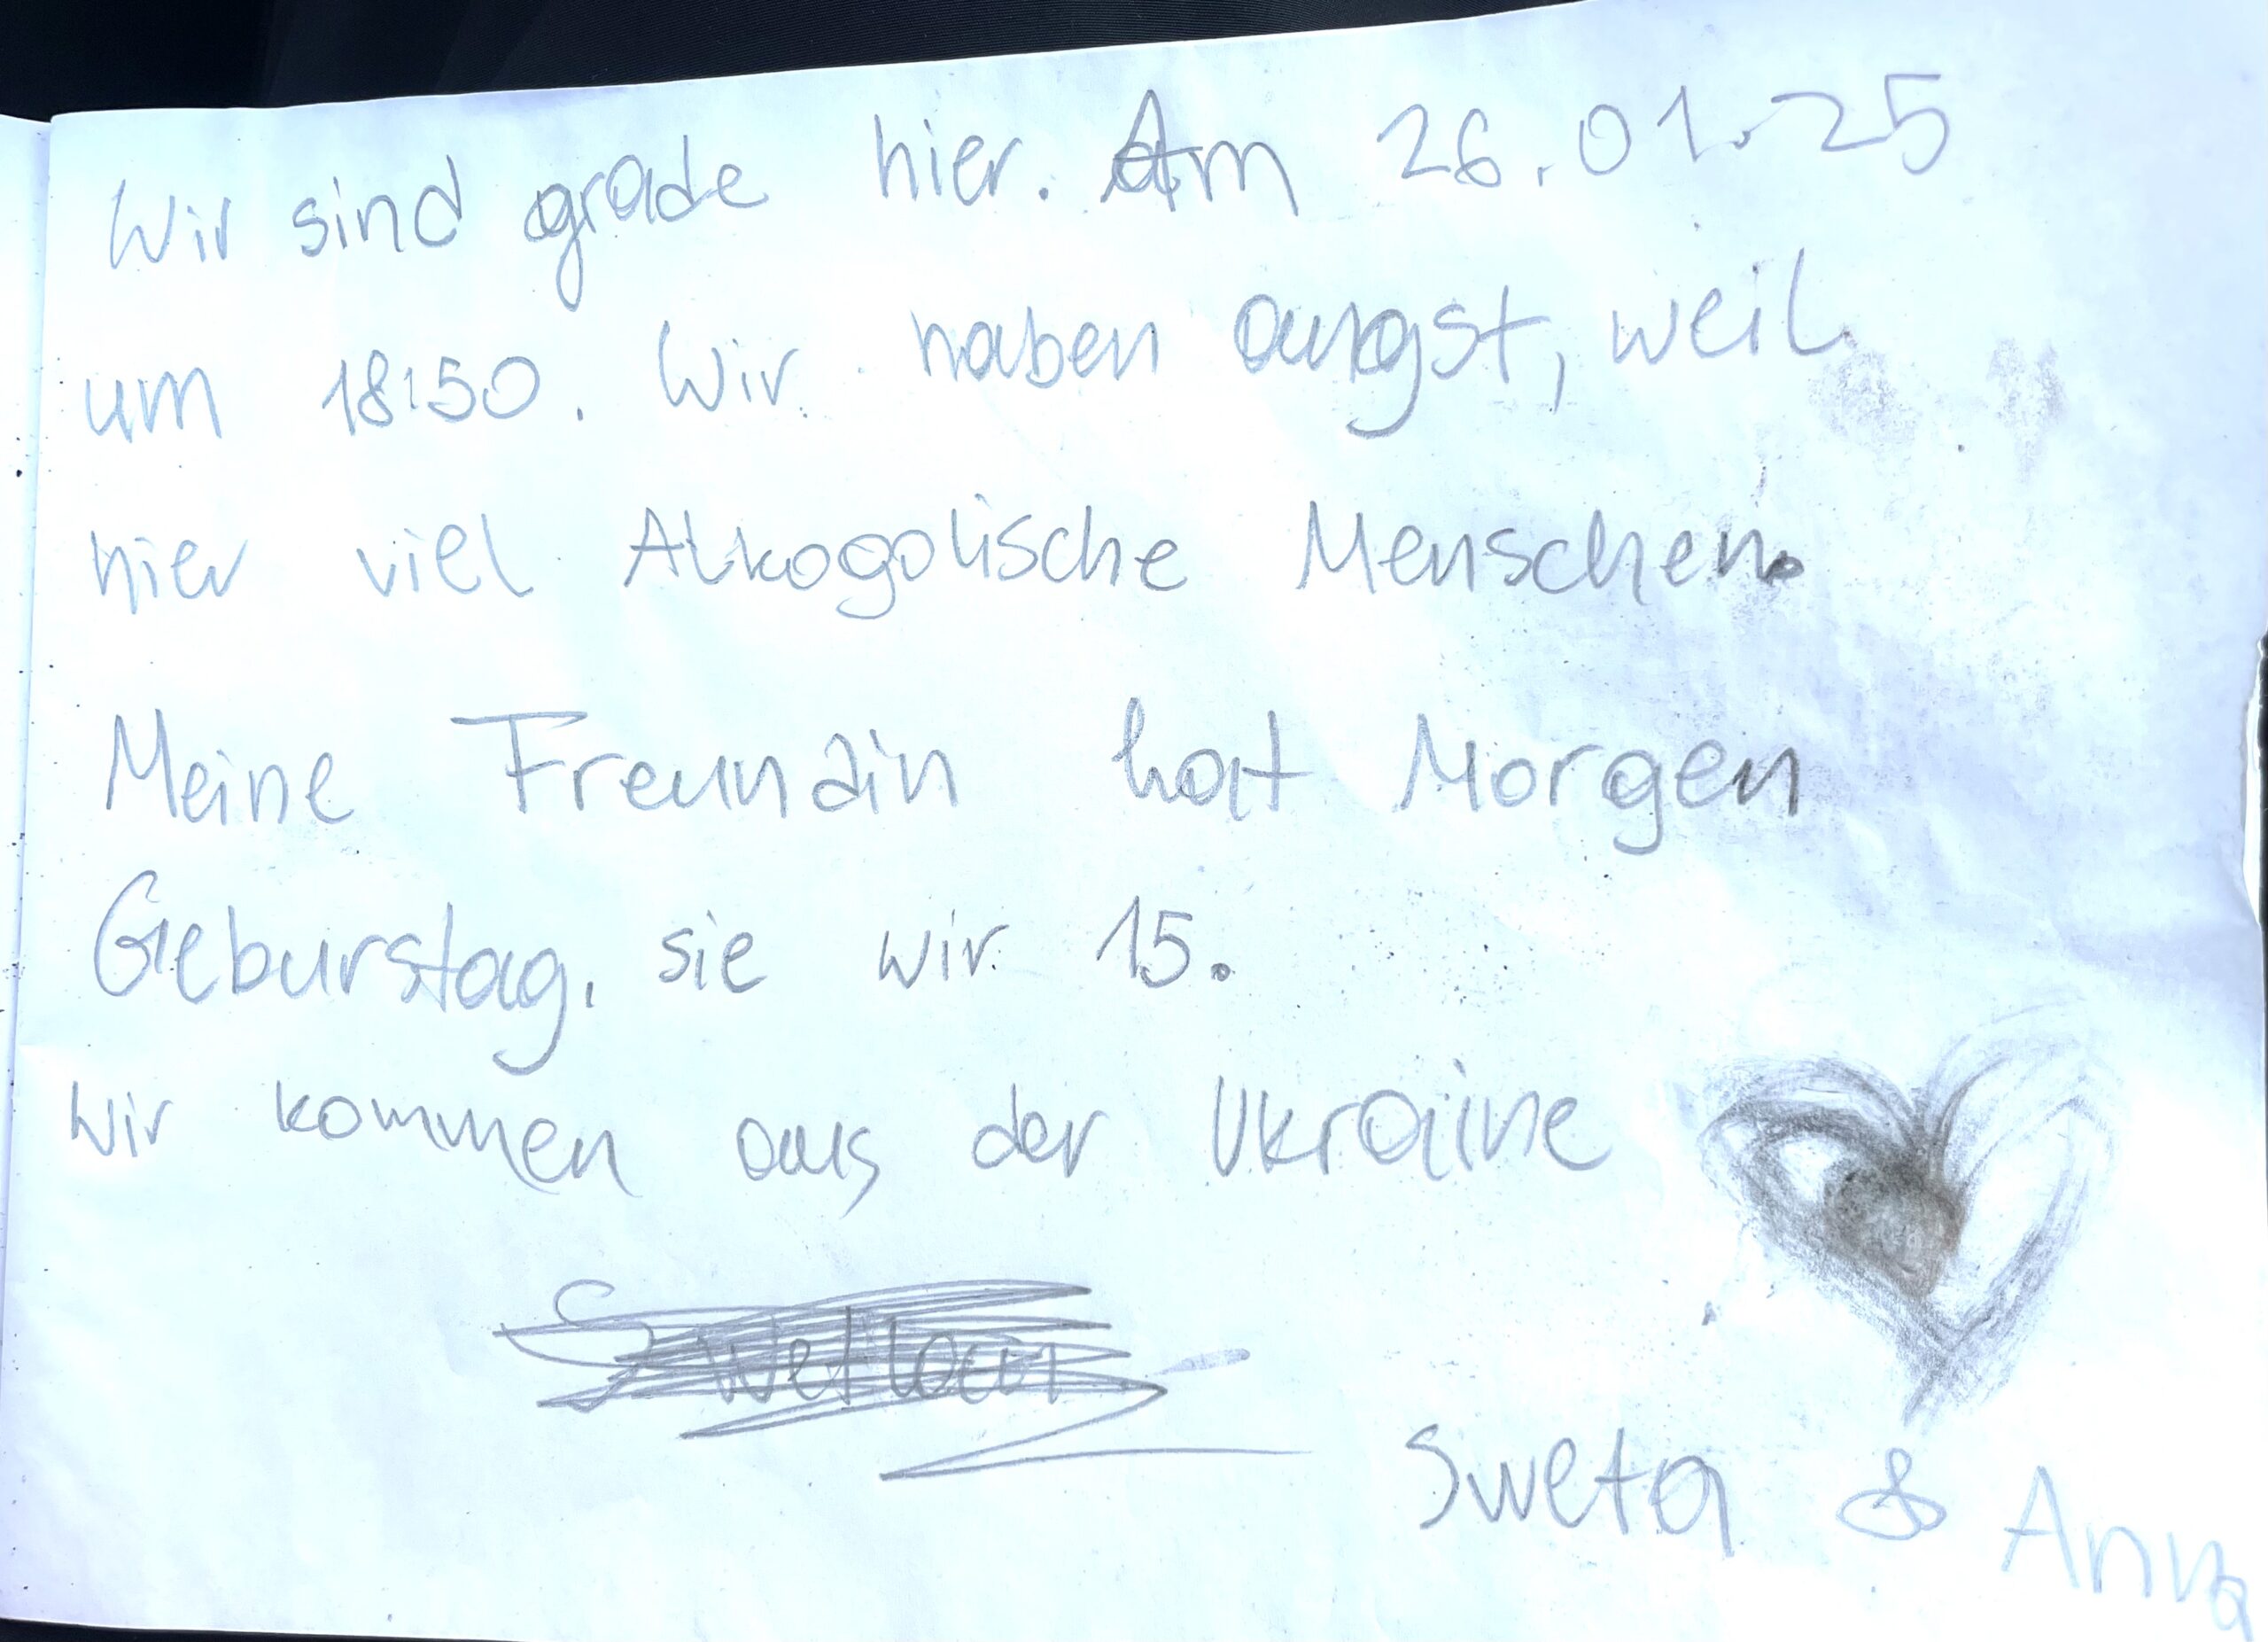 Wir sind grade hier. Am 26.01.25
um 18:50. Wir haben angst, weil
hier viel Alkogolische Menschen.
Meine Freundin hat Morgen
Geburstag. sie wir 15.
Wir kommen aus der Ukraine
Sweta & Anna